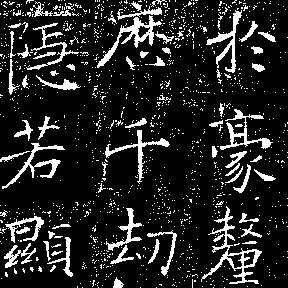 於豪釐
歷千劫
隱若顯